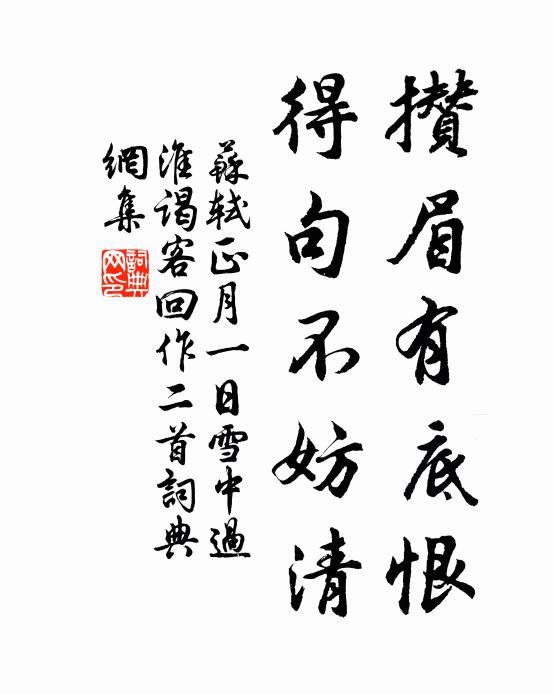 攢眉有底恨
得句不妨清
蘇軾正月一日雪中過
淮謁客回作二首詞典
網集
詞典网印